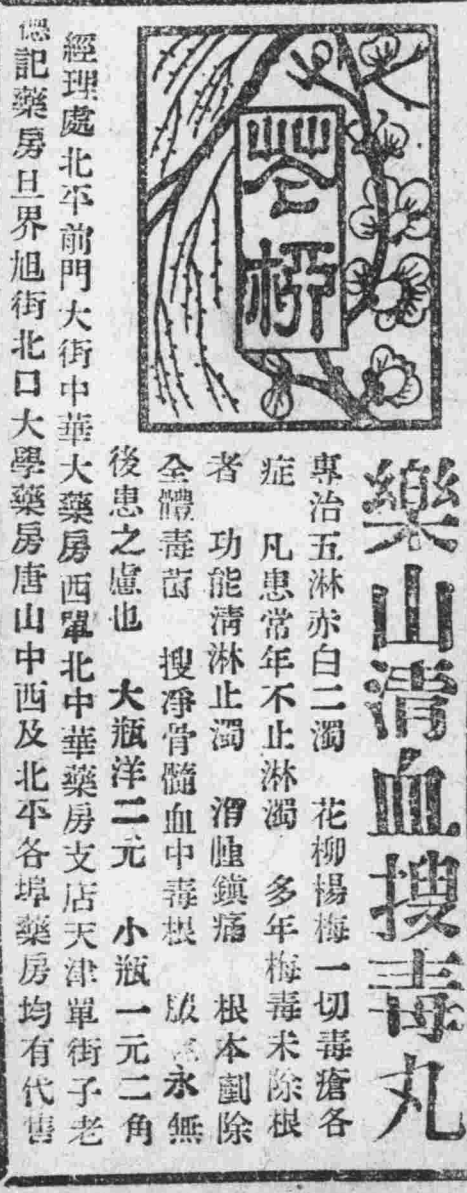 花柳
樂山清血搜毒丸
專治五淋赤白二濁 花柳楊梅一切毒瘡各
症 凡患常年不止淋濁 多年梅毒未除根
者 功能淸淋止濁 消腫鎭痛 根本剷除
全體毒菌 搜凈骨髓血中毒根 永無
後患之慮也 大瓶洋二元 小瓶一元二角
經理處北平前門大街中華大藥房西單北中華藥房支店天津單街子老
德記藥房旦界旭街北口大學藥房唐山中西及北平各埠藥房均有代售